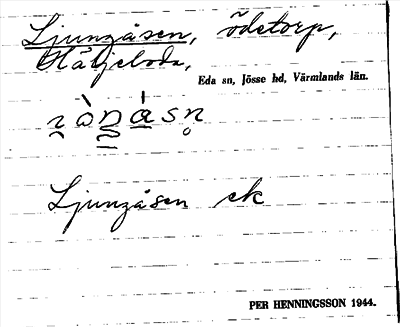 Ljungåsen, ödetorp,
Håljeboda,
Eda sn, Jösse hd, Värmlands län.
Ljungåsen ek
PER HENNINGSSON 1944.